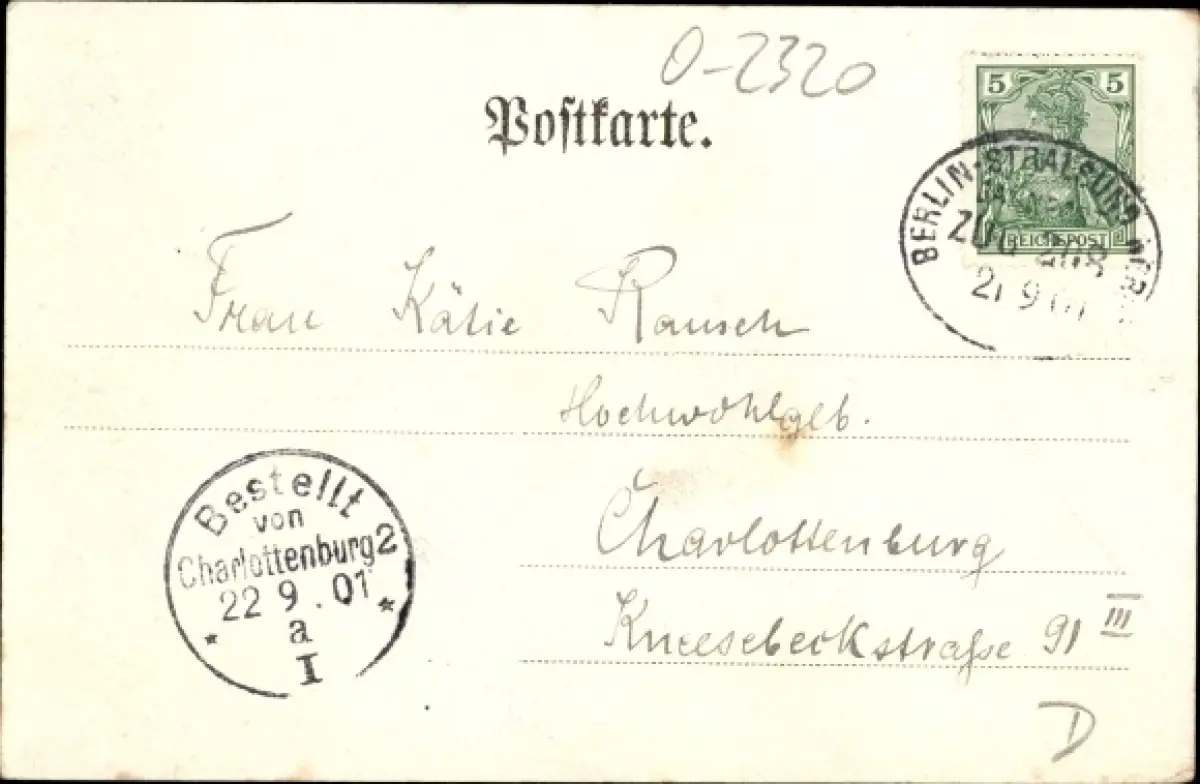 O-2320
Postkarte.
5 5
REICHSPOST
BERLIN-STRALSUND
ZUG 208
21 9 01
Frau Kätie Rausch
Hochwohlgeb.
Bestellt
von
Charlottenburg 2
22 9. 01
* a *
I
Charlottenburg
Kneesebeckstraße 91 III
D